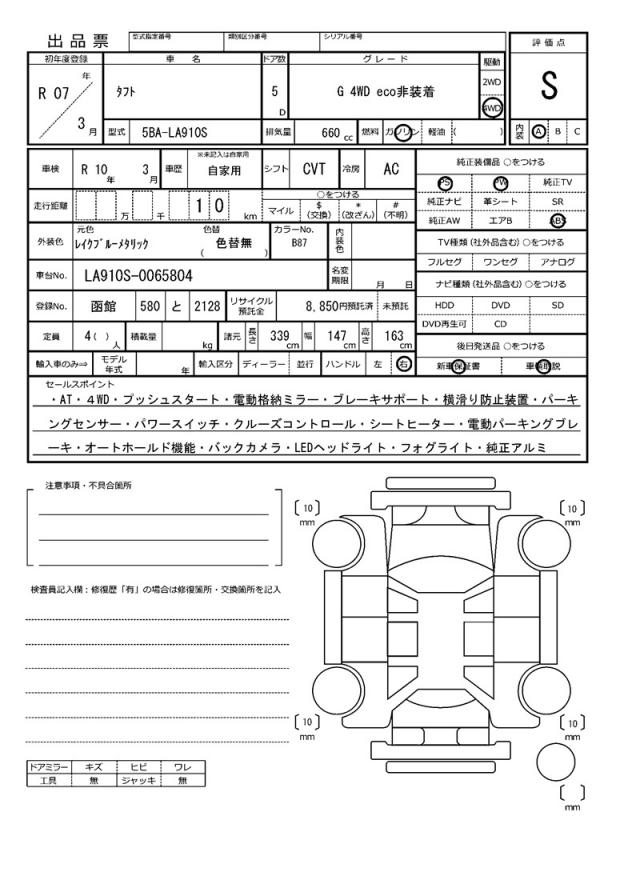 出品票
型式指定番号 類別区分番号 シリアル番号
評価点
初年度登録 車名 ドア数 グレード 駆動
R 07 年 3 月
タフト
5 D
G 4WD eco非装着
2WD
4WD
S
型式 5BA-LA910S 排気量 660 cc 燃料 ガソリン 軽油 ( )
内装 A B C
車検 R 10 年 3 月 車歴 ※未記入は自家用 自家用 シフト CVT 冷房 AC
純正装備品 ○をつける
PS PW 純正TV
純正ナビ 革シート SR
純正AW エアB ABS
走行距離 万 千 1 0 km
○をつける
マイル $(交換) *(改ざん) #(不明)
外装色 元色 レイクブルーメタリック 色替 ( 色替無 ) カラーNo. B87 内装色
TV種類(社外品含む)○をつける
フルセグ ワンセグ アナログ
車台No. LA910S-0065804 名変期限 月 日
ナビ種類(社外品含む)○をつける
HDD DVD SD
DVD再生可 CD
登録No. 函館 580 と 2128 リサイクル預託金 8,850円預託済 未預託
定員 4( ) 人 積載量 kg 諸元 長さ 339 cm 幅 147 cm 高さ 163 cm
後日発送品 ○をつける
新車保証書 車輌取説
輸入車のみ⇒ モデル年式 年 輸入区分 ディーラー 並行 ハンドル 左 右
セールスポイント
・AT・4WD・プッシュスタート・電動格納ミラー・ブレーキサポート・横滑り防止装置・パーキ
ングセンサー・パワースイッチ・クルーズコントロール・シートヒーター・電動パーキングブレ
ーキ・オートホールド機能・バックカメラ・LEDヘッドライト・フォグライト・純正アルミ
注意事項・不具合箇所
検査員記入欄：修復歴「有」の場合は修復箇所・交換箇所を記入
〔10〕mm
〔10〕mm
〔10〕mm
〔10〕mm
〔 〕mm
ドアミラー キズ ヒビ ワレ
工具 無 ジャッキ 無